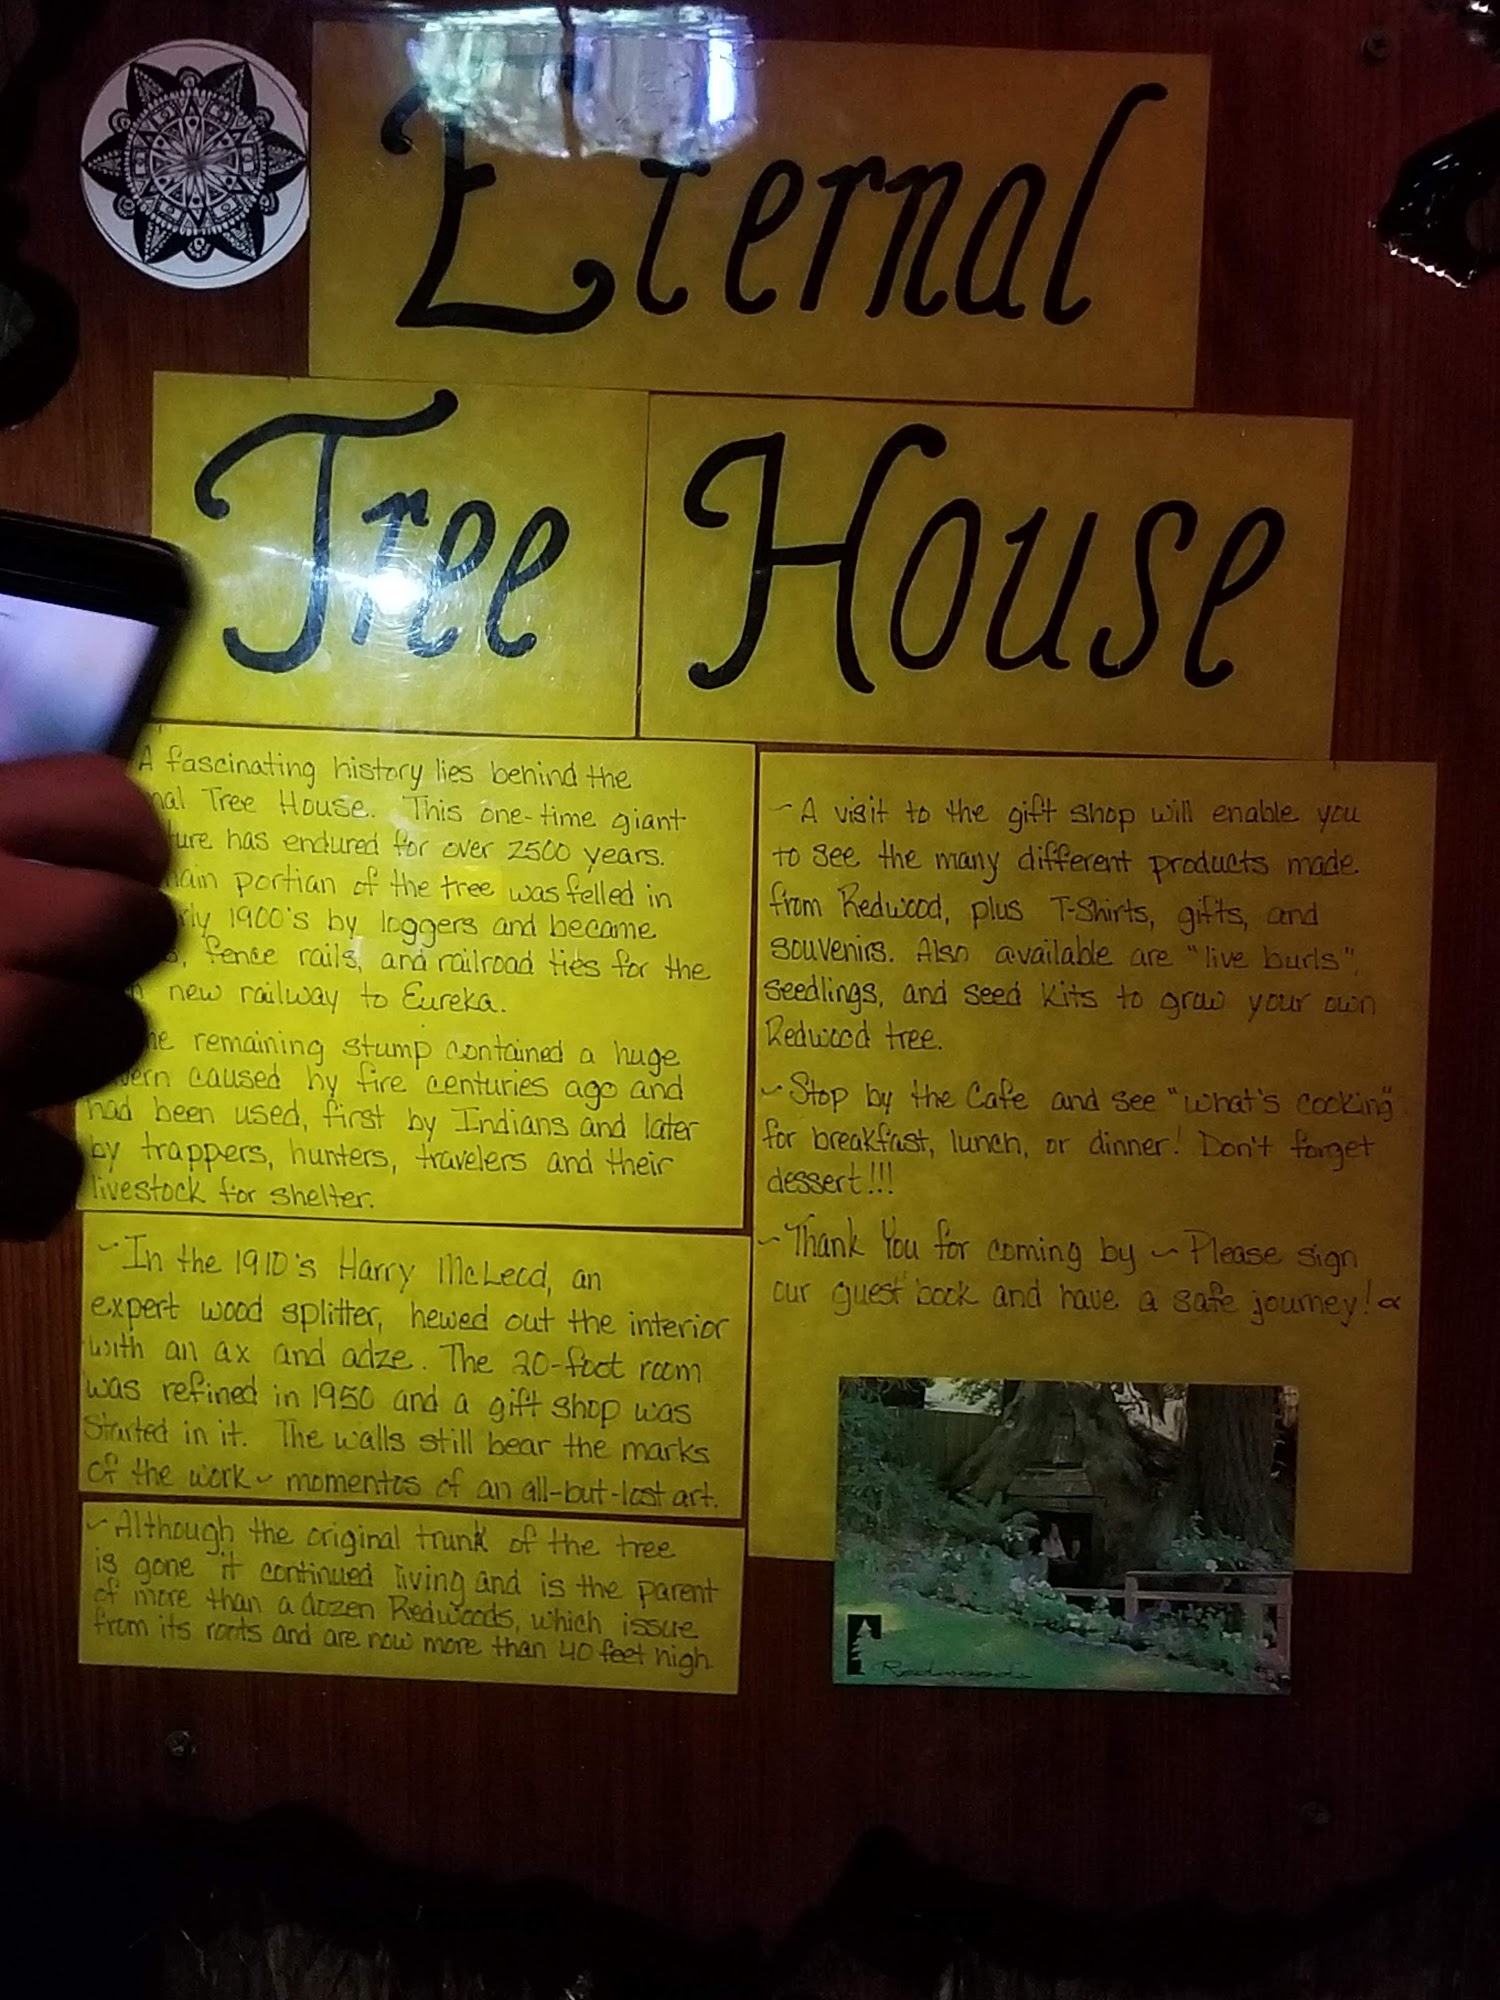 Eternal
Tree House
A fascinating history lies behind the
nal Tree House. This one-time giant
ture has endured for over 2500 years.
ain portian of the tree was felled in
rly 1900's by loggers and became
s, fence rails, and railroad ties for the
new railway to Eureka.
he remaining stump contained a huge
vern caused by fire centuries ago and
had been used, first by Indians and later
by trappers, hunters, travelers and their
livestock for shelter.
~In the 1910's Harry McLeod, an
expert wood splitter, hewed out the interior
with an ax and adze. The 20-foot room
was refined in 1950 and a gift shop was
started in it. The walls still bear the marks
of the work~momentos of an all-but-lost art.
~Although the original trunk of the tree
is gone it continued living and is the parent
of more than a dozen Redwoods, which issue
from its roots and are now more than 40 feet high.
~A visit to the gift shop will enable you
to see the many different products made
from Redwood, plus T-Shirts, gifts, and
souvenirs. Also available are "live burls",
seedlings, and seed kits to grow your own
Redwood tree.
~Stop by the Cafe and see "what's cooking"
for breakfast, lunch, or dinner! Don't forget
dessert!!!
~Thank You for coming by ~ Please sign
our guest book and have a safe journey!
Redwoods